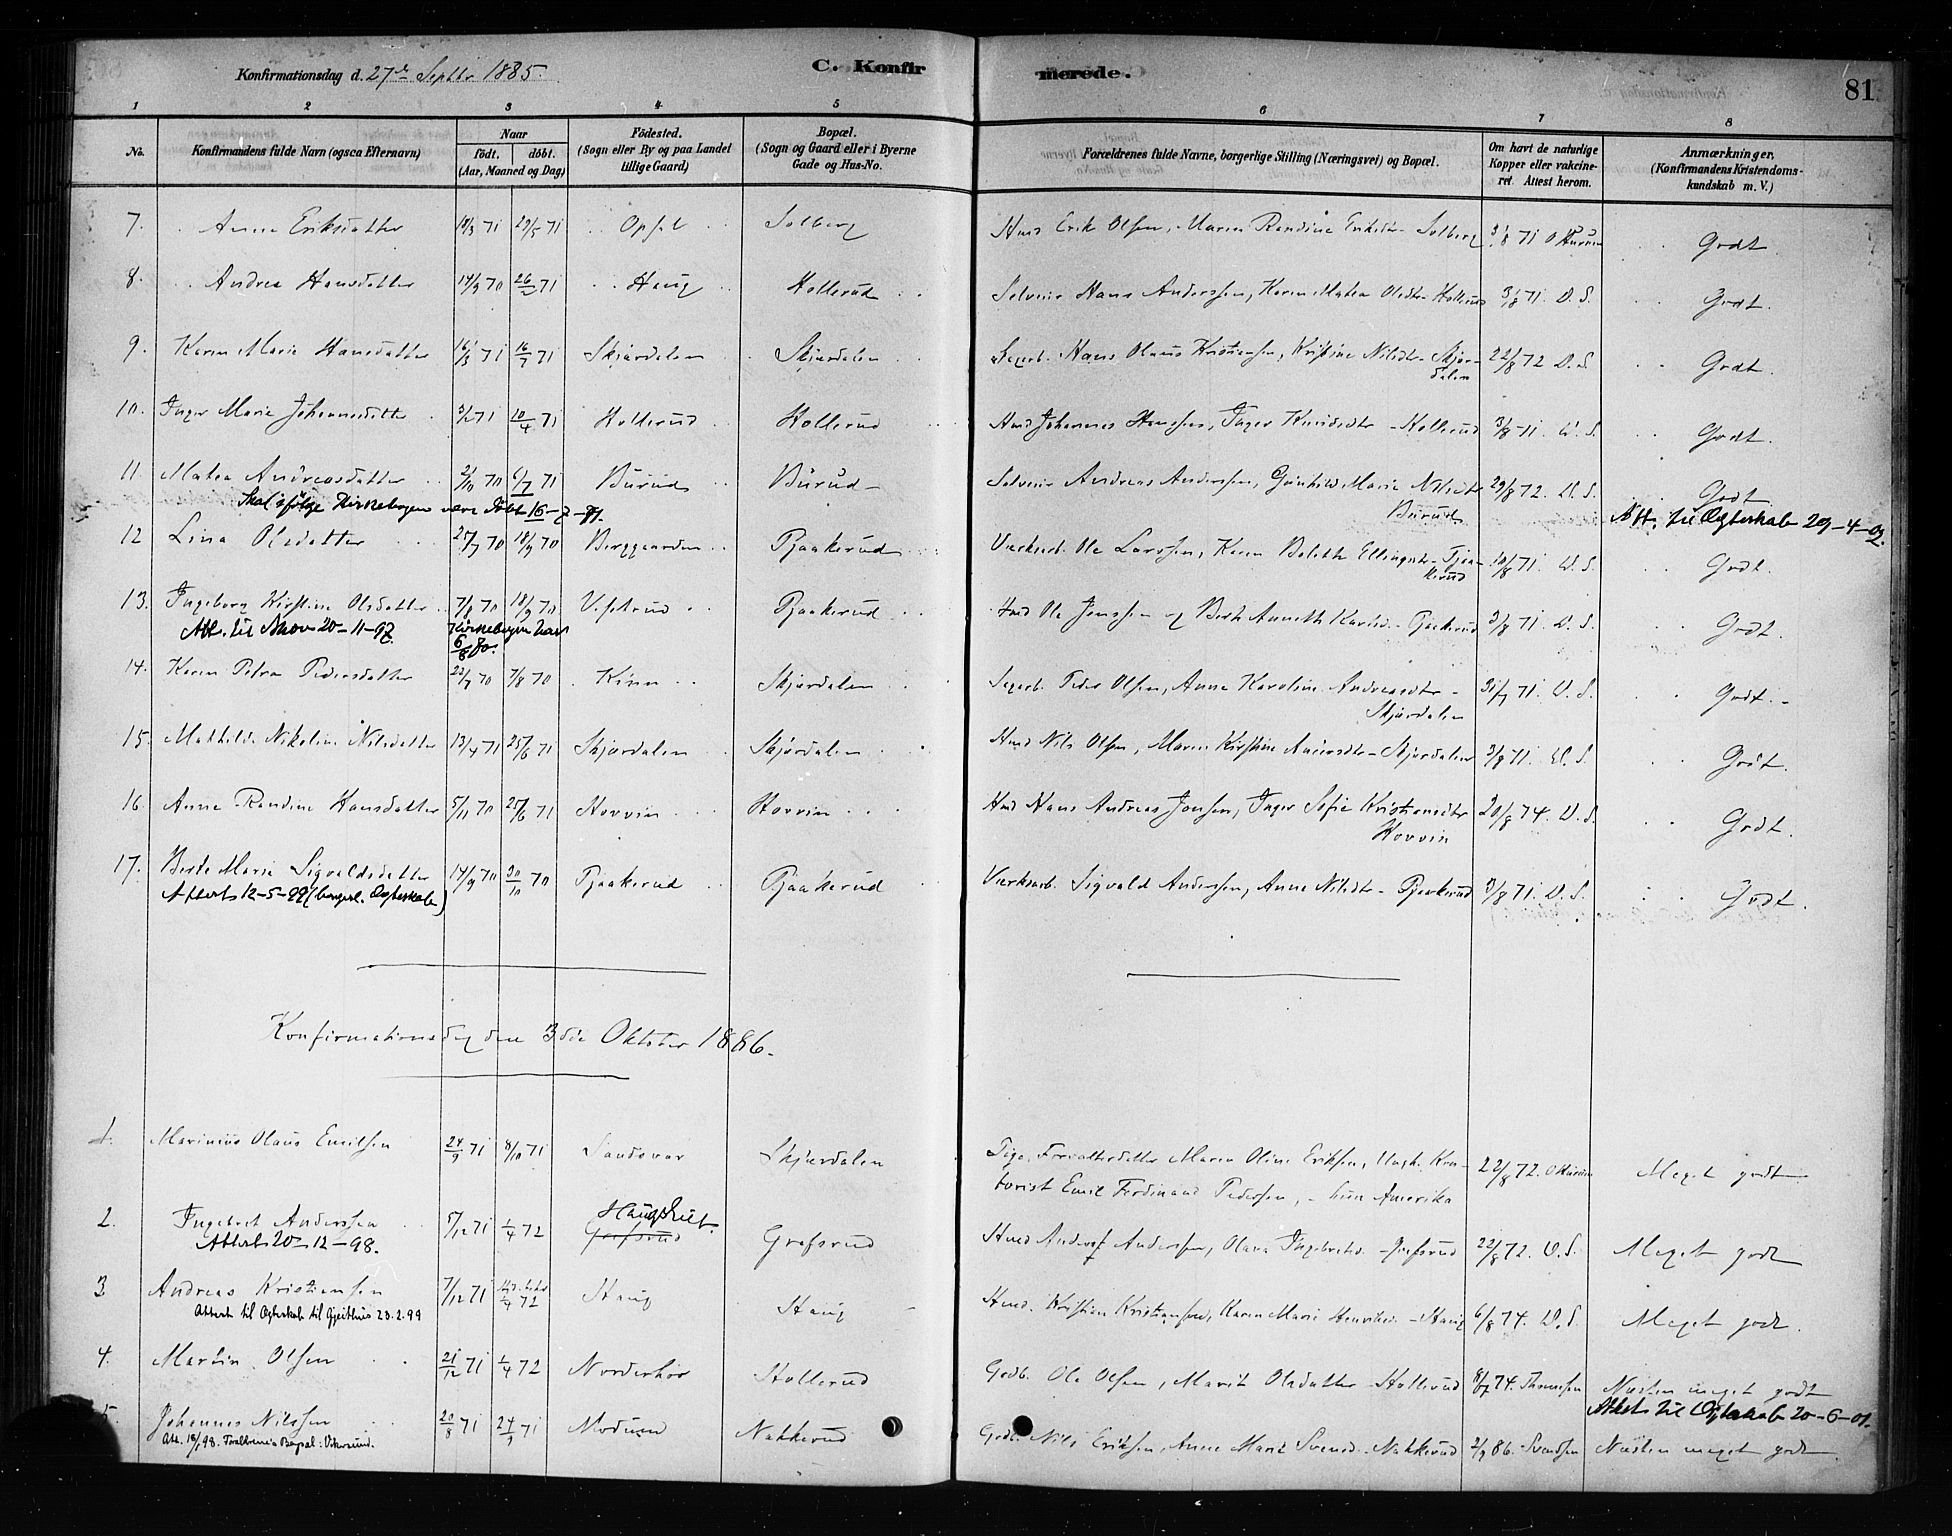 Konfirmationsdag d. 27de Septbr 1885.
C. Konfirmerede.
81
1 2 3 4 5 6 7 8
No.
Konfirmandens fulde Navn (ogsaa Efternavn)
Naar
födt. döbt.
(Aar, Maaned og Dag)
Födested.
(Sogn eller By og paa Landet
tillige Gaard)
Bopæl.
(Sogn og Gaard eller i Byerne
Gade og Hus-No.
Forældrenes fulde Navne, borgerlige Stilling (Næringsvei) og Bopæl.
Om havt de naturlige
Kopper eller vakcine-
ret. Attest herom.
Anmærkninger.
(Konfirmandens Kristendoms-
kundskab m. V.)
7. Anne Eriksdatter 18/3 71 29/5 71 Opsal Solberg Hmd Erik Olsen, Maren Randine Eriksdtr Solberg 3/8 71 Godt
8. Andrea Hansdatter 14/9 70 26/2 71 Haug Hollerud Selveier Hans Andersen, Karen Matea Olsdtr Hollerud 3/8 71. D. S. Godt.
9. Karen Marie Hansdatter 16/3 71 16/7 71 Skjærdalen Skjærdalen Sagarb. Hans Olaus Kristiansen, Kristine Nilsdtr Skjær-
dalen 22/8 72 D. S. Godt.
10. Inger Marie Johannesdatter 3/2 71 10/4 71 Hollerud Hollerud Hmd Johannes Hansen, Inger Knudsdtr Hollerud 3/8 71. D. S. Godt.
11 Matea Andreasdatter 2/10 70 6/7 71 Burud Burud Selveier Andreas Andersen, Gunhild Marie Nilsdtr
Burud 29/8 72. D. S. Godt
Skal ifølge Kirkebogen være døbt 16-7-71.
Att. til Ægteskab 29-4-02.
12 Lina Olsdatter 25/7 70 18/9 70 Berggaarden Tjaakerud Værksarb. Ole Larsen, Karen Bolette Ellingsdtr Tjaa-
kerud 10/8 71. D. S. Godt.
13. Ingeborg Kirstine Olsdatter 7/8 70 18/9 70 Ulstrud Tjaakerud Hmd Ole Jensen og Berte Anneth Karlsd. Tjaakerud 3/8 71. D. S. Godt.
Att. til Skov 20-11-97 Kirkebogen har
6/8 70.
14. Karen Petra Pedersdatter 22/7 70 7/8 70 Kinn Skjærdalen Sagarb. Peder Olsen, Anne Karoline Andreasdtr
Skjærdalen 31/7 71. D. S. Godt.
15. Mathilde Nikoline Nilsdatter 13/4 71 25/6 71 Skjærdalen Skjærdalen Hmd Nils Olsen, Maren Kirstine Andersdtr Skjærdalen 3/8 71. D. S. Godt.
16. Anne Randine Hansdatter 5/11 70 25/6 71 Hovvin Hovvin Hmd Hans Andreas Jonsen, Inger Sofie Kristiansdtr
Hovvin 20/8 74. D. S. Godt.
17. Berte Marie Sigvaldsdatter 14/9 70 30/10 70 Tjaakerud Tjaakerud Værksarb. Sigvald Andersen, Anne Nilsdtr Tjaakerud 3/8 71. D. S. Godt.
Attest 12-5-99 (borgerl. Ægteskab)
Konfirmationsdag den 3die Oktober 1886.
1. Marinius Olaus Emilsen 24/9 71 8/10 71 Sandsvær Skjærdalen Pige Forvalterdatter Maren Oline Eriksen, Ungk. Kon-
torist Emil Ferdinand Pedersen, Amerika 22/8 72. Meget godt
2. Ingebret Andersen 5/12 71 1/4 72 Haugshut. Græfsrud Græfsrud Hmd Anders Andersen, Olava Ingebretsd. Græfsrud 22/8 72. D. S. Meget godt
Attest 20-12-98.
3 Andreas Kristiansen 7/12 71 1/4 72 Haug Haug Hmd. Kristian Kristiansen, Karen Marie Henriksd. Haug 6/8 74. D. S. Meget godt.
Attest til Ægteskab til Gjeithus 23.2.99
4. Martin Olsen 21/12 71 1/4 72 Norderhov Hollerud Grdb. Ole Olsen, Marit Olsdatter Hollerud 8/7 74. Thomsen Næsten meget godt
Attest til Ægteskab 20-6-01.
5. Johannes Nilsen 20/8 71 24/9 71 Modum Nakkerud Grdb. Nils Eriksen, Anne Marie Svensd. Nakkerud 2/9 86. Svendsen Næsten meget godt
Vikersund.